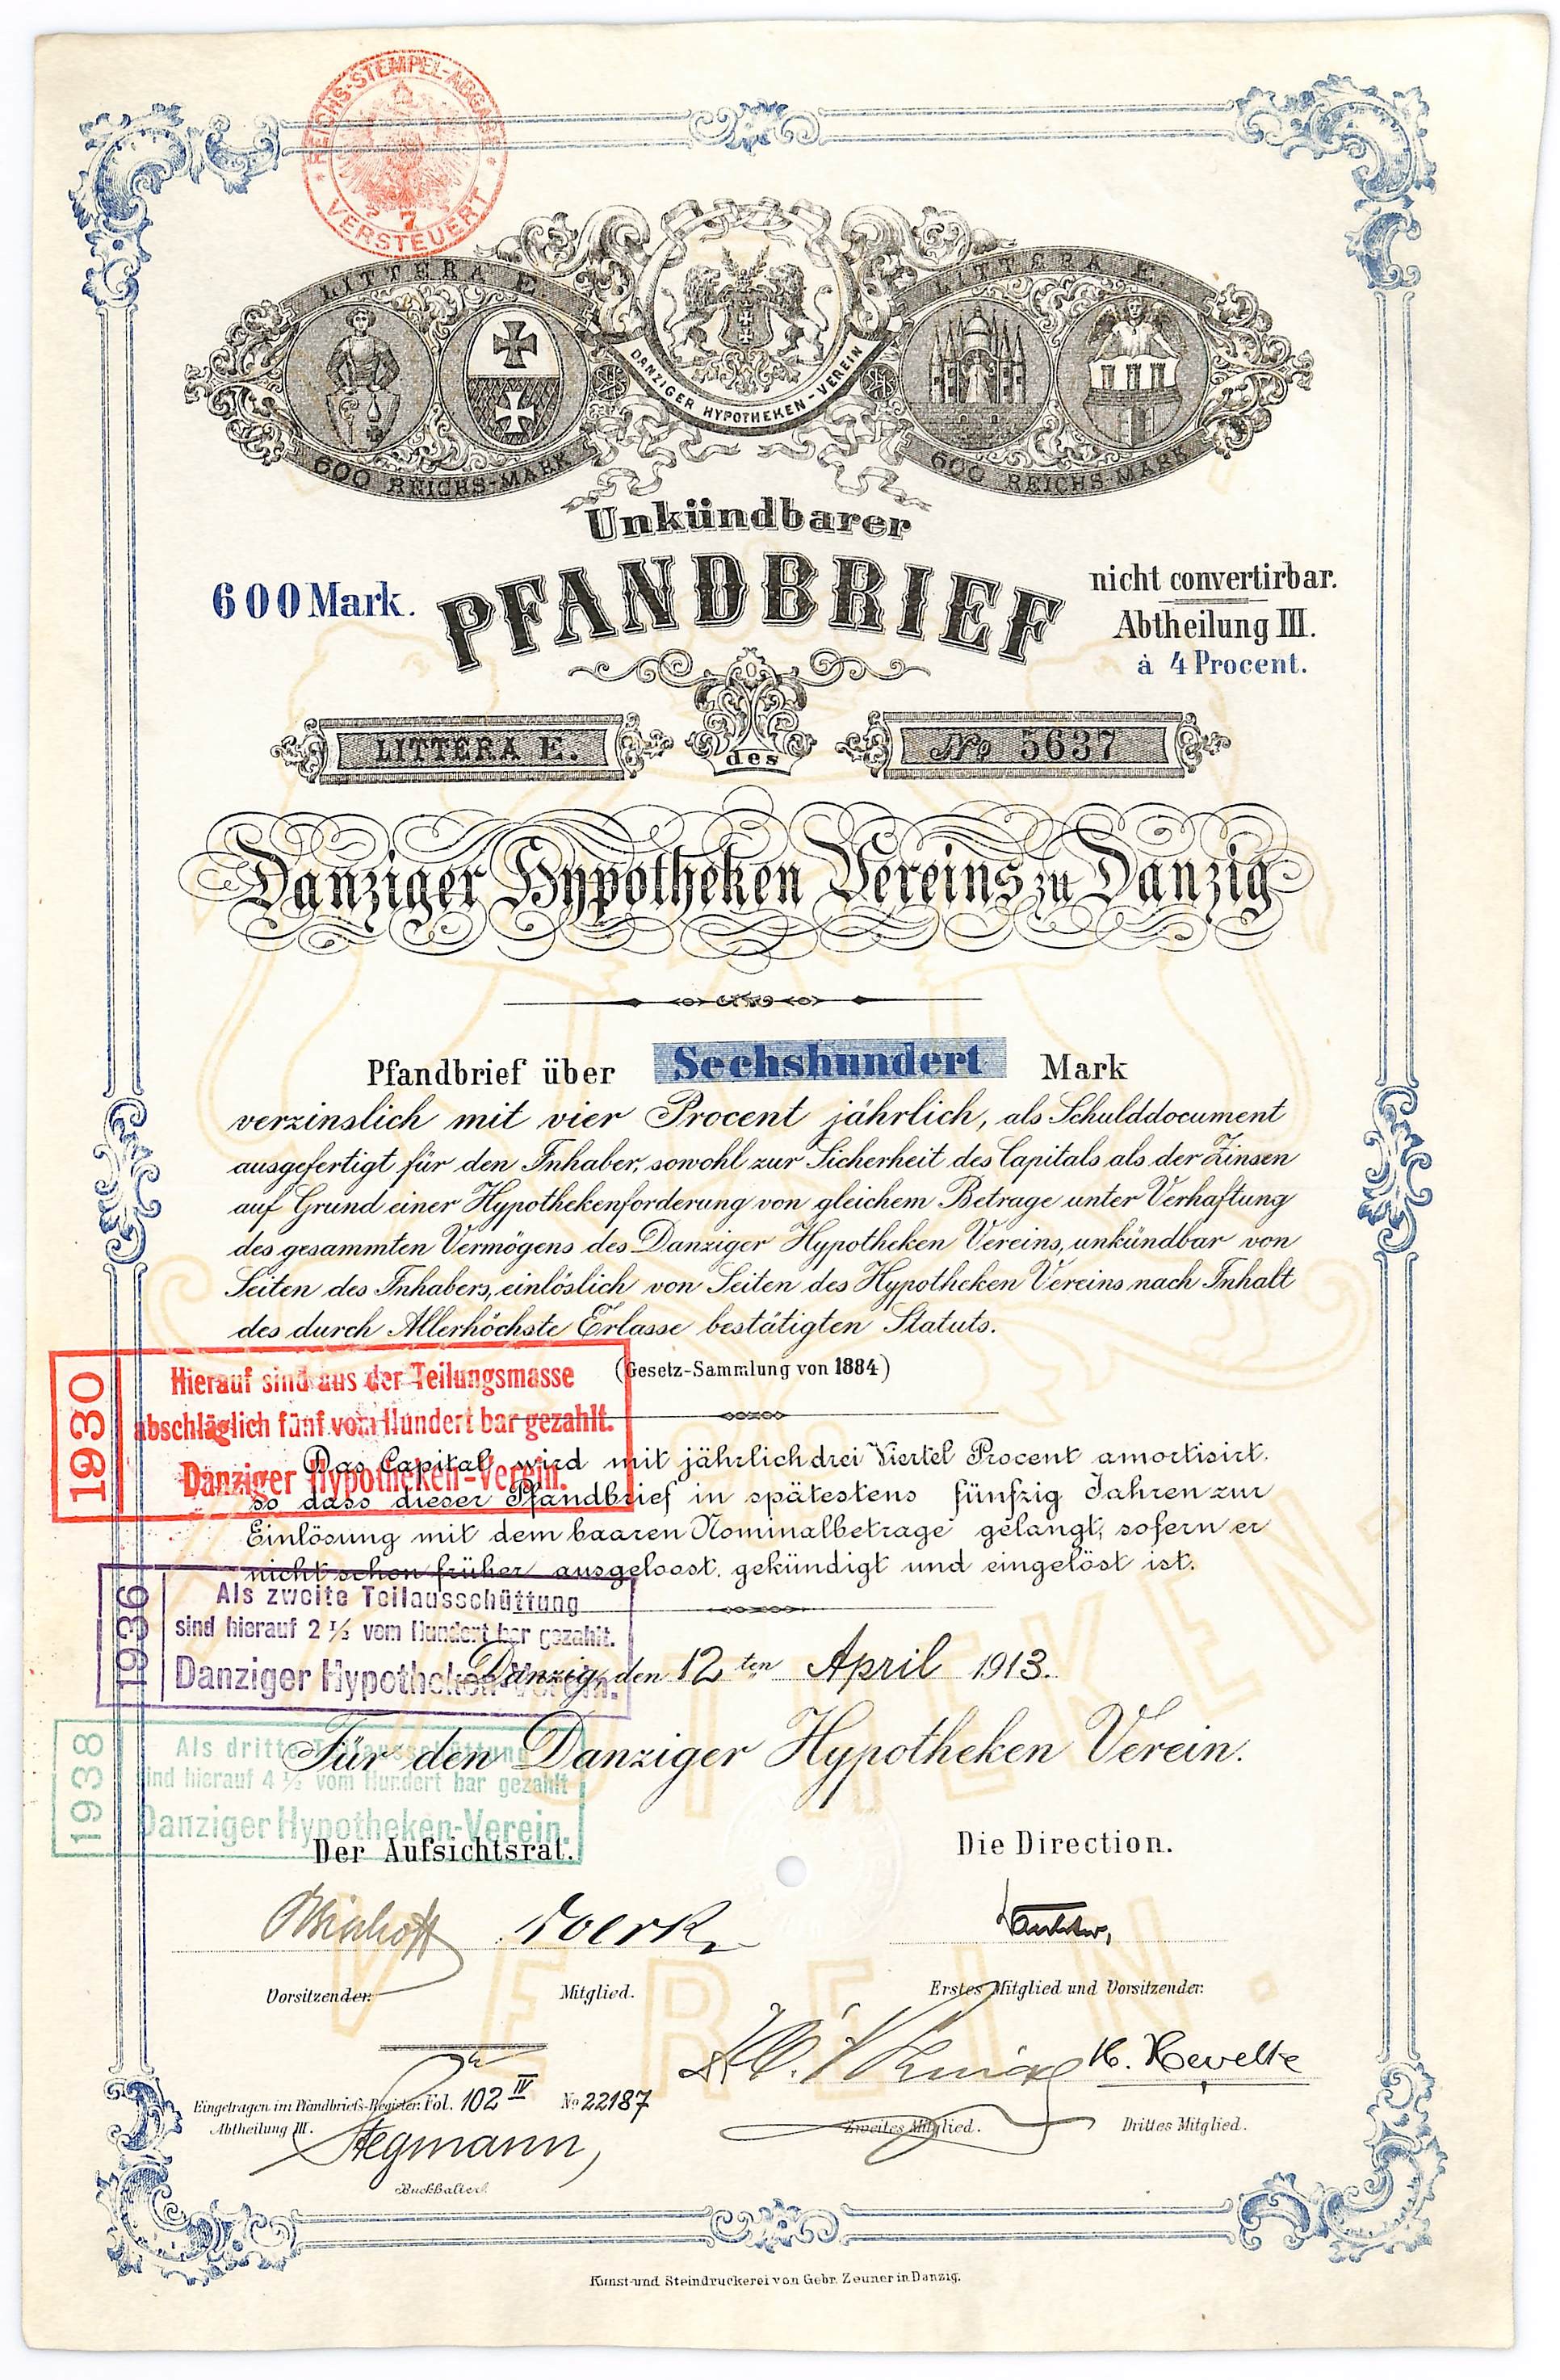 REICHS-STEMPEL-ABGABE
7
VERSTEUERT
LITTERA E.
LITTERA E.
DANZIGER HYPOTHEKEN-VEREIN
600 REICHS-MARK
600 REICHS-MARK
Unkündbarer
600 Mark.
PFANDBRIEF
nicht convertirbar.
Abtheilung III.
à 4 Procent.
LITTERA E.
des
No 5637
Danziger Hypotheken Vereins zu Danzig
Pfandbrief über Sechshundert Mark
verzinslich mit vier Procent jährlich, als Schulddocument
ausgefertigt für den Inhaber, sowohl zur Sicherheit des Capitals als der Zinsen
auf Grund einer Hypothekenforderung von gleichem Betrage unter Verhaftung
des gesammten Vermögens des Danziger Hypotheken Vereins, unkündbar von
Seiten des Inhabers, einlöslich von Seiten des Hypotheken Vereins nach Inhalt
des durch Allerhöchste Erlasse bestätigten Statuts.
(Gesetz-Sammlung von 1884)
1930
Hierauf sind aus der Teilungsmasse
abschläglich fünf vom Hundert bar gezahlt.
Danziger Hypotheken-Verein.
Das Capital wird mit jährlich drei Viertel Procent amortisirt,
so dass dieser Pfandbrief in spätestens fünfzig Jahren zur
Einlösung mit dem baaren Nominalbetrage gelangt, sofern er
nicht schon früher ausgeloost, gekündigt und eingelöst ist.
1936
Als zweite Teilausschüttung
sind hierauf 2 ½ vom Hundert bar gezahlt.
Danziger Hypotheken-Verein.
Danzig, den 12 ten April 1913.
Für den Danziger Hypotheken Verein.
1938
Als dritte Teilausschüttung
sind hierauf 4 ½ vom Hundert bar gezahlt
Danziger Hypotheken-Verein.
Der Aufsichtsrat.
Die Direction.
Vorsitzender.
Mitglied.
Erstes Mitglied und Vorsitzender.
Eingetragen im Pfandbriefs-Register. Fol. 102 IV No 22187
Abtheilung III.
Stegmann
Buchhalter.
Zweites Mitglied.
Drittes Mitglied.
Kunst- und Steindruckerei von Gebr. Zeuner in Danzig.